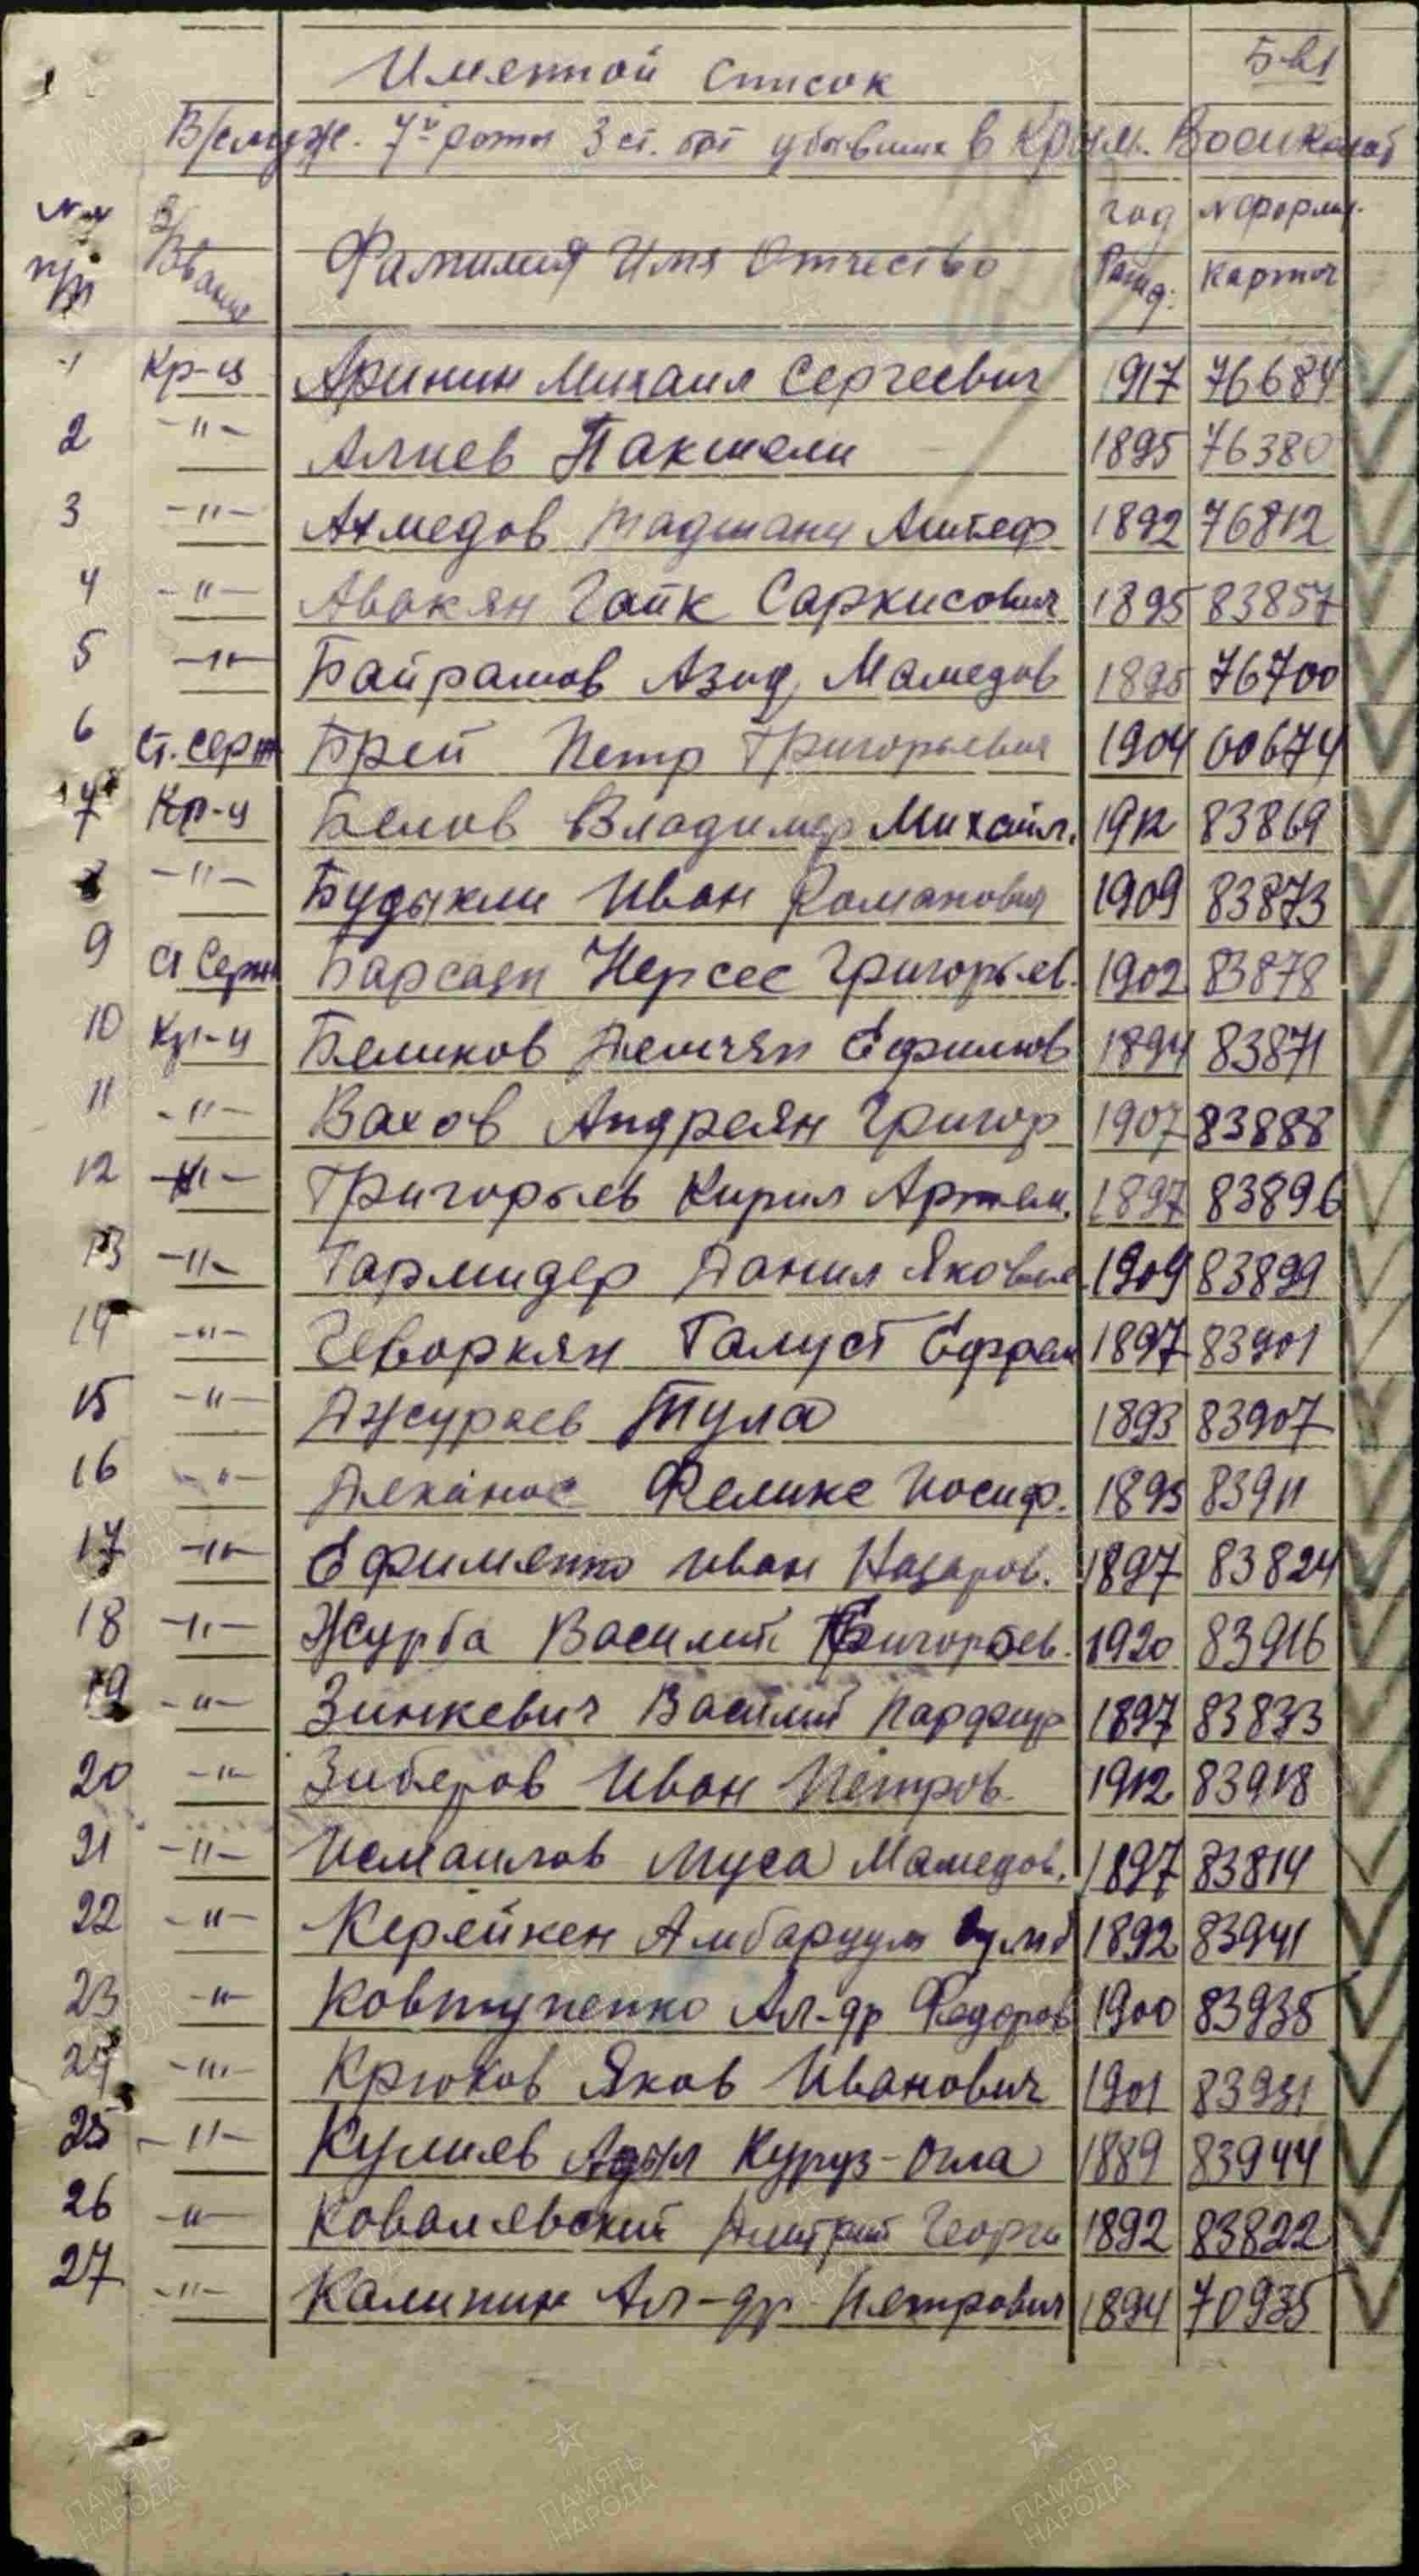 Именной список
В/служ. 7й роты 3 ст. бат убывших в Крым. Военкомат
№№ п/п Звание Фамилия Имя Отчество год рожд. № формул. карточ
1 Кр-ц Аринин Михаил Сергеевич 1917 76684
2 -"- Алиев Пакшели 1895 76380
3 -"- Ахмедов 1892 76812
4 -"- Авакян Гайк Саркисович 1895 83857
5 -"- Байрамов Азид Мамедов 1895 76700
6 ст. серж Брей Петр Григорьевич 1904 60674
7 Кр-ц Белов Владимер Михайл. 1912 83869
8 -"- Будыкли Иван Романович 1909 83873
9 ст Серж Барсаян Нерсес Григорьев. 1902 83878
10 Кр-ц Беликов Демьян Ефимов 1894 83871
11 -"- Вахов Андреян Григор 1907 83888
12 -"- Григорьев Кирил Артем. 1897 83896
13 -"- Гармидер Данил Яковлев. 1909 83899
14 -"- Геворкян Галуст Ефрем 1897 83901
15 -"- Джураев Тула 1893 83907
16 -"- Деканос Феликс Иосиф. 1895 83911
17 -"- Ефименко Иван Назаров. 1897 83824
18 -"- Журба Василий Григорьев. 1920 83916
19 -"- Зинкевич Василий Парфир 1897 83833
20 -"- Зиберов Иван Петров. 1912 83918
21 -"- Исмаилов Муса Мамедов. 1897 83814
22 -"- Керейкен 1892 83941
23 -"- Ковтуненко Ал-др Федоров 1900 83935
24 -"- Крюков Яков Иванович 1901 83931
25 -"- Кулиев Адыл Куруз-Огла 1889 83944
26 -"- Ковалевский Дмитрий Георги 1892 83822
27 -"- Калинин Ал-др Петрович 1894 70935
ПАМЯТЬ НАРОДА